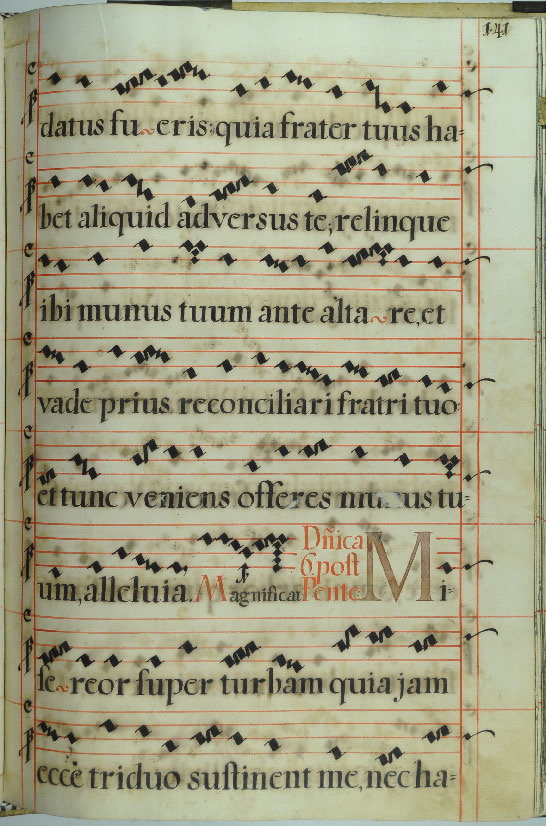 141
datus fu~eris: quia frater tuus ha=
bet aliquid adversus te, relinque
ibi munus tuum ante alta~re, et
vade prius reconciliari fratri tuo
et tunc veniens offeres munus tu=
um, alleluia. Magnificat Dñica 6. post Pente Mi-
se~reor super turbam quia jam
ecce triduo sustinent me, nec ha=